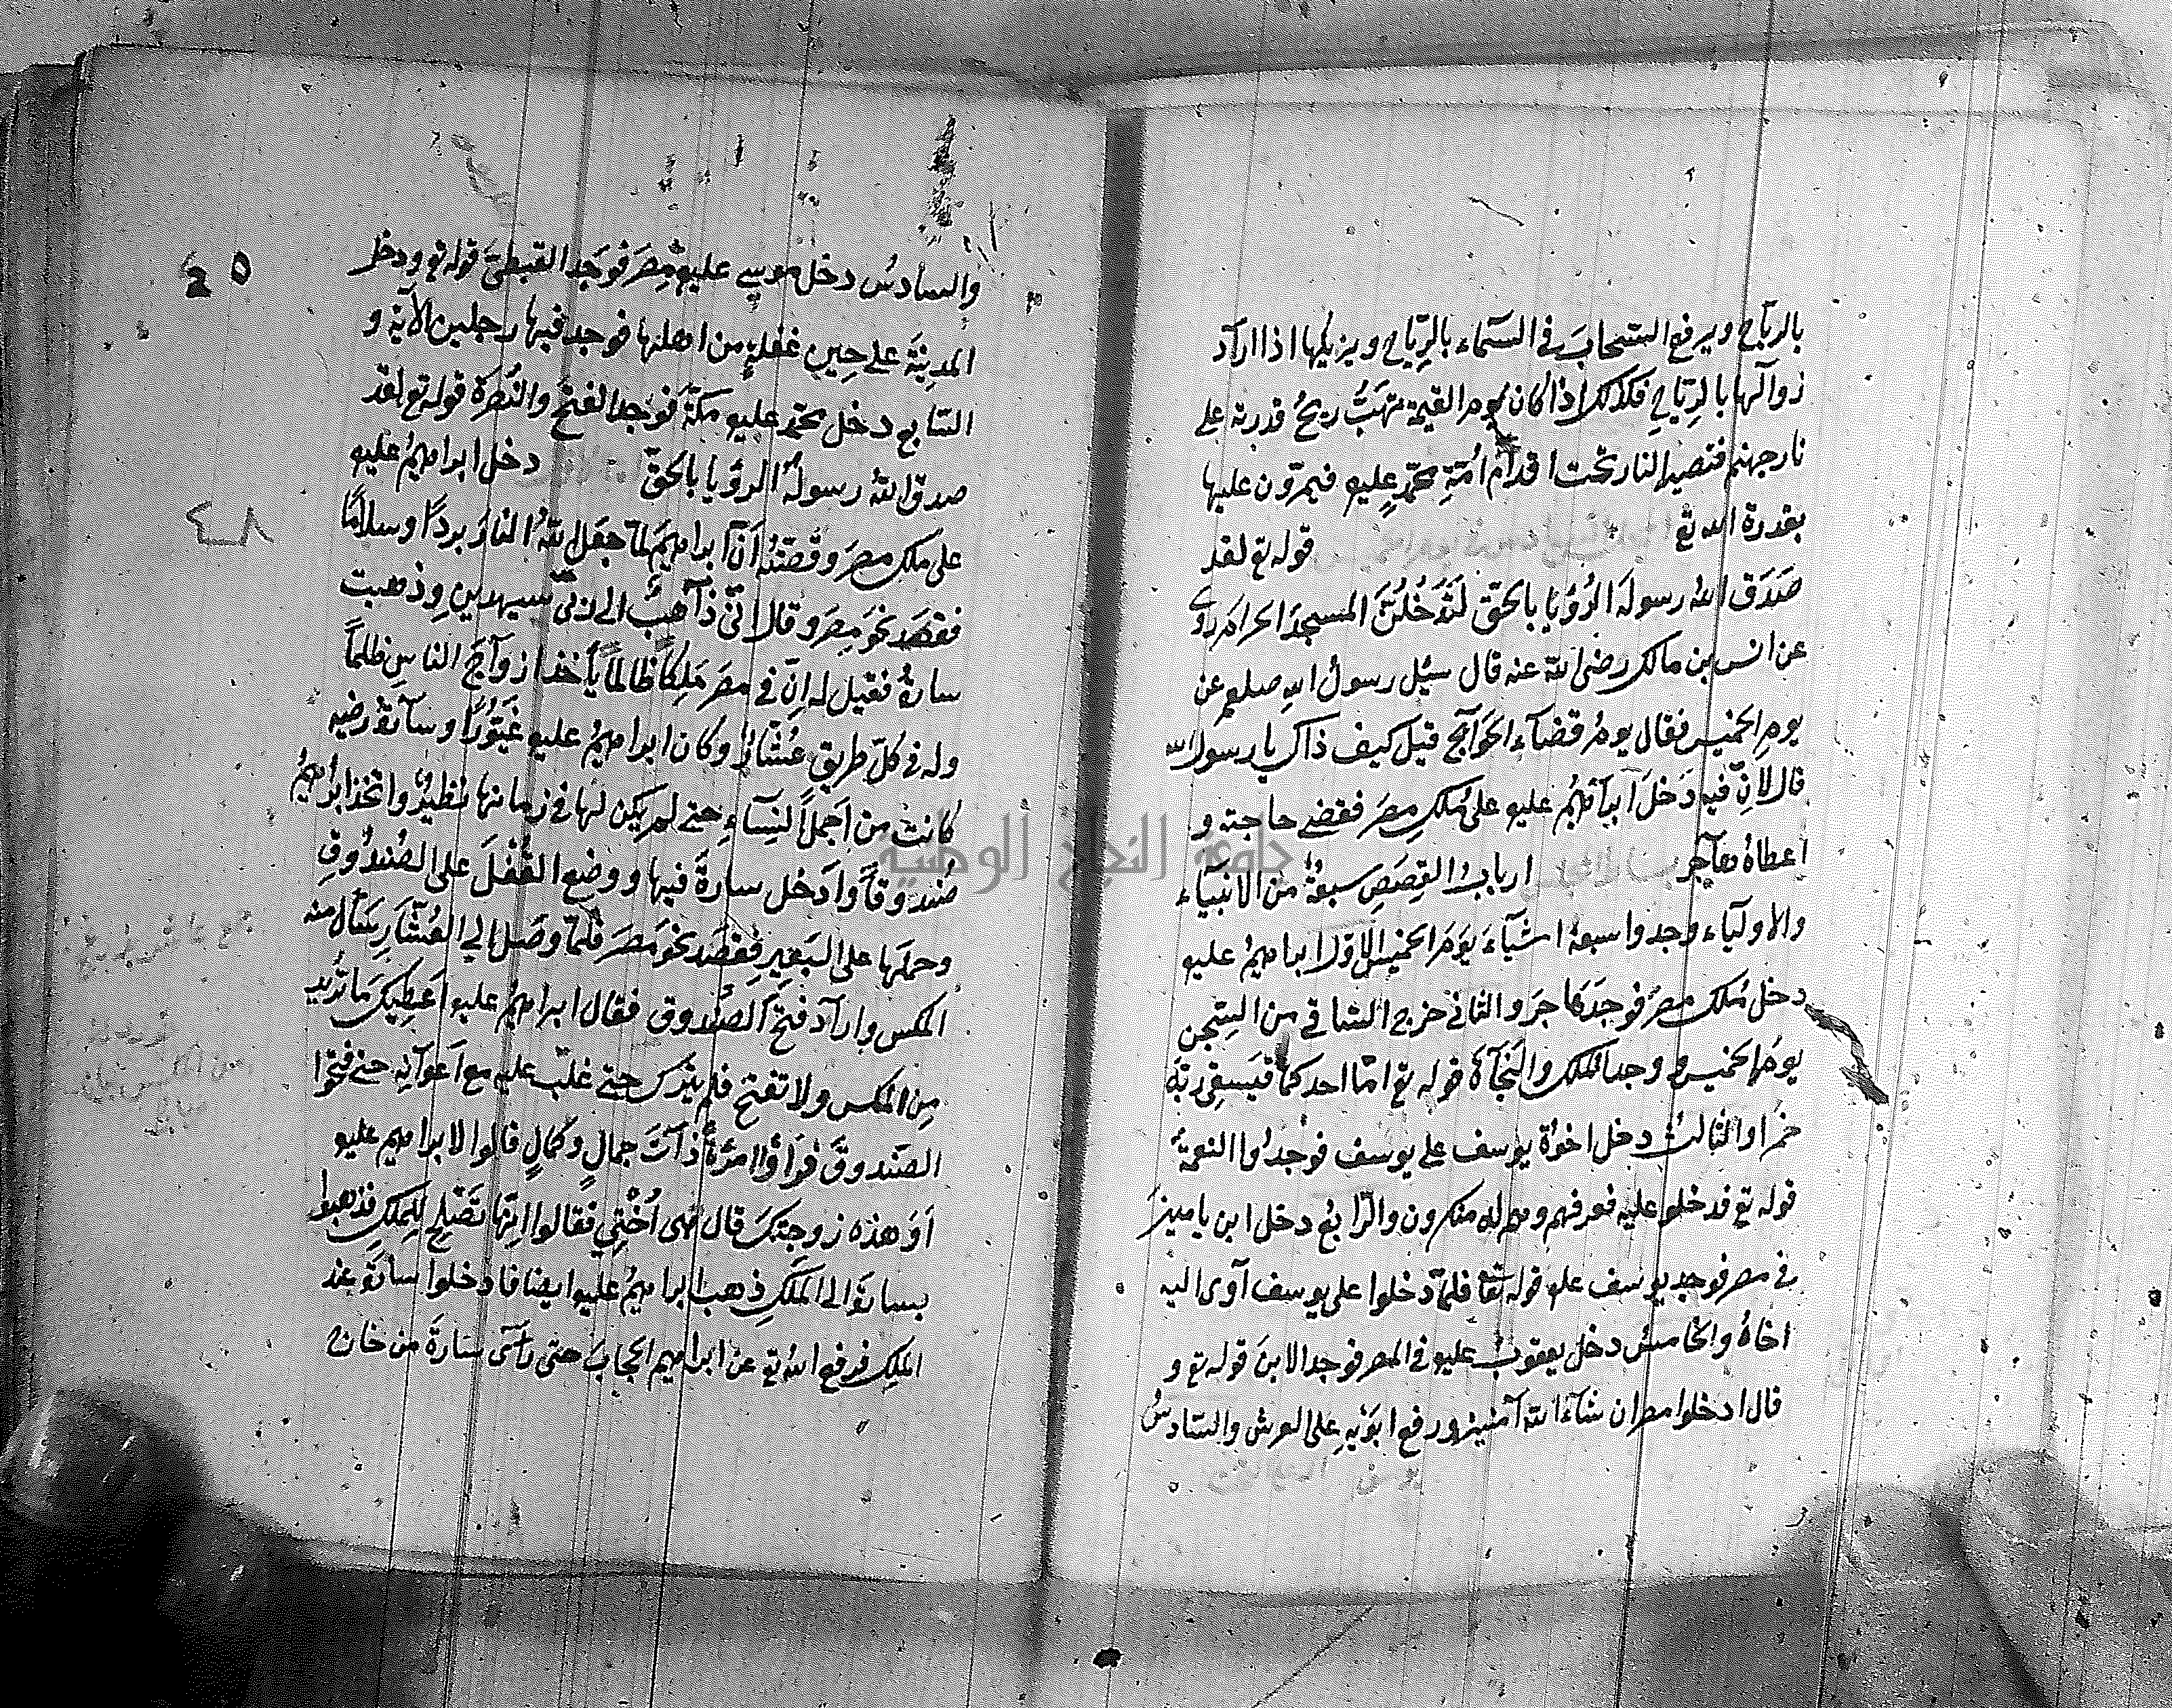 بالرياح ويرفع السحاب في السماء بالرياح ويزيلها اذا اراد
زوالها بالرياح فكذلك اذا كان يوم القيمة تهب ريح قدرته على
نار جهنم فتصير النار تحت اقدام امة محمد عليه فيمرون عليها
بقدرة الله تع قوله تع لقد
صدق الله رسوله الرؤيا بالحق لتدخلن المسجد الحرام روى
عن انس بن مالك رضى الله عنه قال سئل رسول الله صلعم عن
يوم الخميس فقال يوم قضاء الحوآئج قيل كيف ذاك يا رسول الله
قال لان فيه دخل ابراهيم عليه على ملك مصر فقضى حاجته و
اعطاه هاجر ارباب القصص سبعة من الانبياء
والاولياء وجدوا سبعة اشياء يوم الخميس الاول ابراهيم عليه
دخل ملك مصر فوجد هاجر والثانى خرج الساقي من السجن
يوم الخميس وجد الملك والنجاة قوله تع اما احدكما فيسقى ربه
خمرا والثالث دخل اخوة يوسف على يوسف فوجدوا النعمة
قوله تع فدخلوا عليه فعرفهم وهم له منكرون والرابع دخل ابن يامين
في مصر فوجد يوسف عليه قوله تعا فلما دخلوا على يوسف آوى اليه
اخاه والخامس دخل يعقوب عليه في المصر فوجد الابن قوله تع و
قال ادخلوا مصر ان شاء الله آمنين ورفع ابويه على العرش والسادس
٢٥
والسادس دخل موسى عليه مصر فوجد القبطى قوله تع ودخل
المدينة على حين غفلة من اهلها فوجد فيها رجلين الآية و
السابع دخل محمد عليه مكة فوجد الفتح والنصرة قوله تع لقد
صدق الله رسوله الرؤيا بالحق دخل ابراهيم عليه
٤٨
على ملك مصر وقصته ان ابراهيم لما جعل الله النار بردا وسلاما
فقصد نحو مصر وقال انى ذاهب الى ربى سيهدين وذهبت
سارة فقيل له ان في مصر ملكا ظالما يأخذ ازواج الناس ظلما
وله في كل طريق عشار وكان ابراهيم عليه غيورا وسارة رضيه
كانت من اجمل النساء حتى لم يكن لها في زمانها نظير واتخذ ابراهيم
صندوقا وادخل سارة فيها ووضع القفل على الصندوق
وحملها على البعير فقصد نحو مصر فلما وصل الى العشار يسأل منه
المكس واراد فتح الصندوق فقال ابراهيم عليه اعطيك ما تريد
من المكس ولا تفتح فلم يترك حتى غلب عليه مع اعوانه حتى فتحوا
الصندوق فرأوا امرأة ذات جمال وكمال قالوا لابراهيم عليه
أو هذه زوجتك قال هى اختى فقالوا انها تصلح للملك فذهبوا
بسارة الى الملك ذهب ابراهيم عليه ايضا فادخلوا سارة عند
الملك فرفع الله تع عن ابراهيم الحجاب حتى رآى سارة من خارج
جامعة النجاح الوطنية